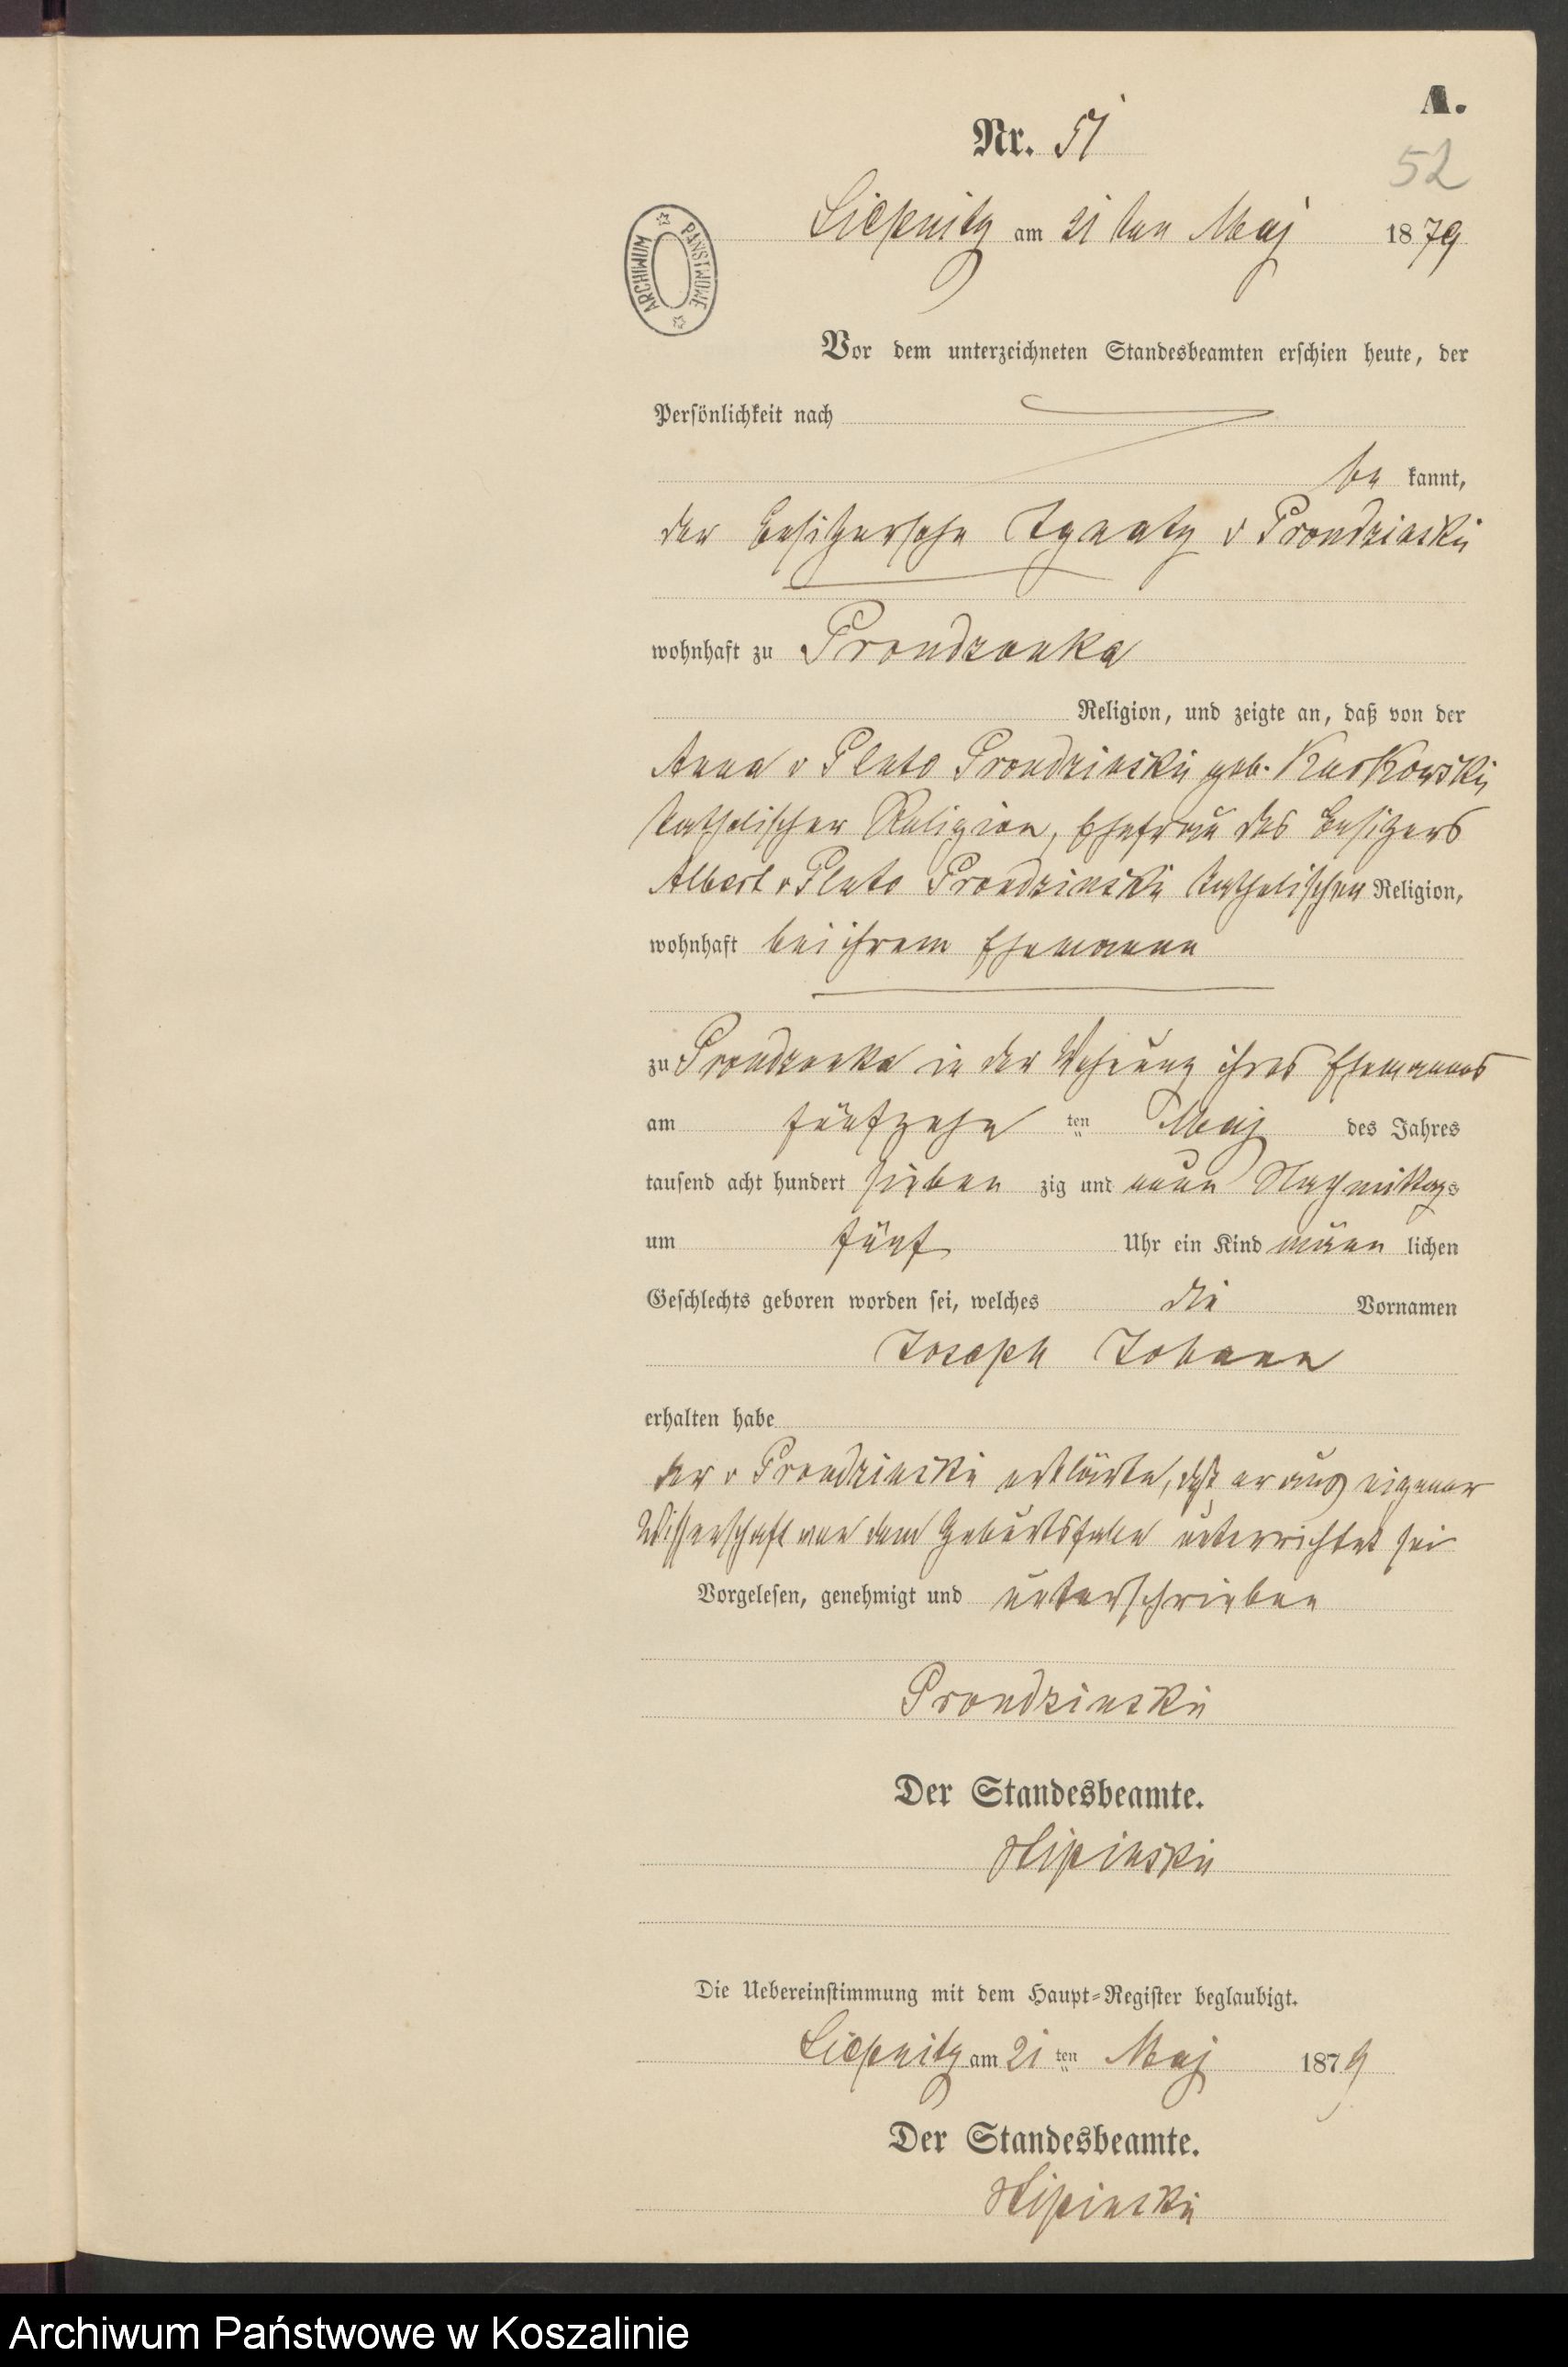 A.
Nr. 51
52
Liepnitz am 21 ten Maj 1879
ARCHIWUM PAŃSTWOWE
Vor dem unterzeichneten Standesbeamten erschien heute, der
Persönlichkeit nach
be kannt,
der Besitzersohn Ignatz v Prondzinski
wohnhaft zu Prondzonka
Religion, und zeigte an, daß von der
Anna v Pluto Prondzinski geb.
katholischer Religion, Ehefrau des Besitzers
Albert v Pluto Prondzinski katholischen Religion,
wohnhaft bei ihrem Ehemanne
zu Prondzonka in der Wohnung ihres Ehemannes
am fünfzehn ten Maj des Jahres
tausend acht hundert sieben zig und neun Nachmittags
um fünf Uhr ein Kind männ lichen
Geschlechts geboren worden sei, welches die Vornamen
Joseph Johann
erhalten habe
der v Prondzinski erklärte, daß er aus eigener
Wissenschaft von dem Geburtsfalle unterrichtet sei
Vorgelesen, genehmigt und unterschrieben
Prondzinski
Der Standesbeamte.
Die Uebereinstimmung mit dem Haupt-Register beglaubigt.
Liepnitz am 21 ten Maj 1879
Der Standesbeamte.
Archiwum Państwowe w Koszalinie